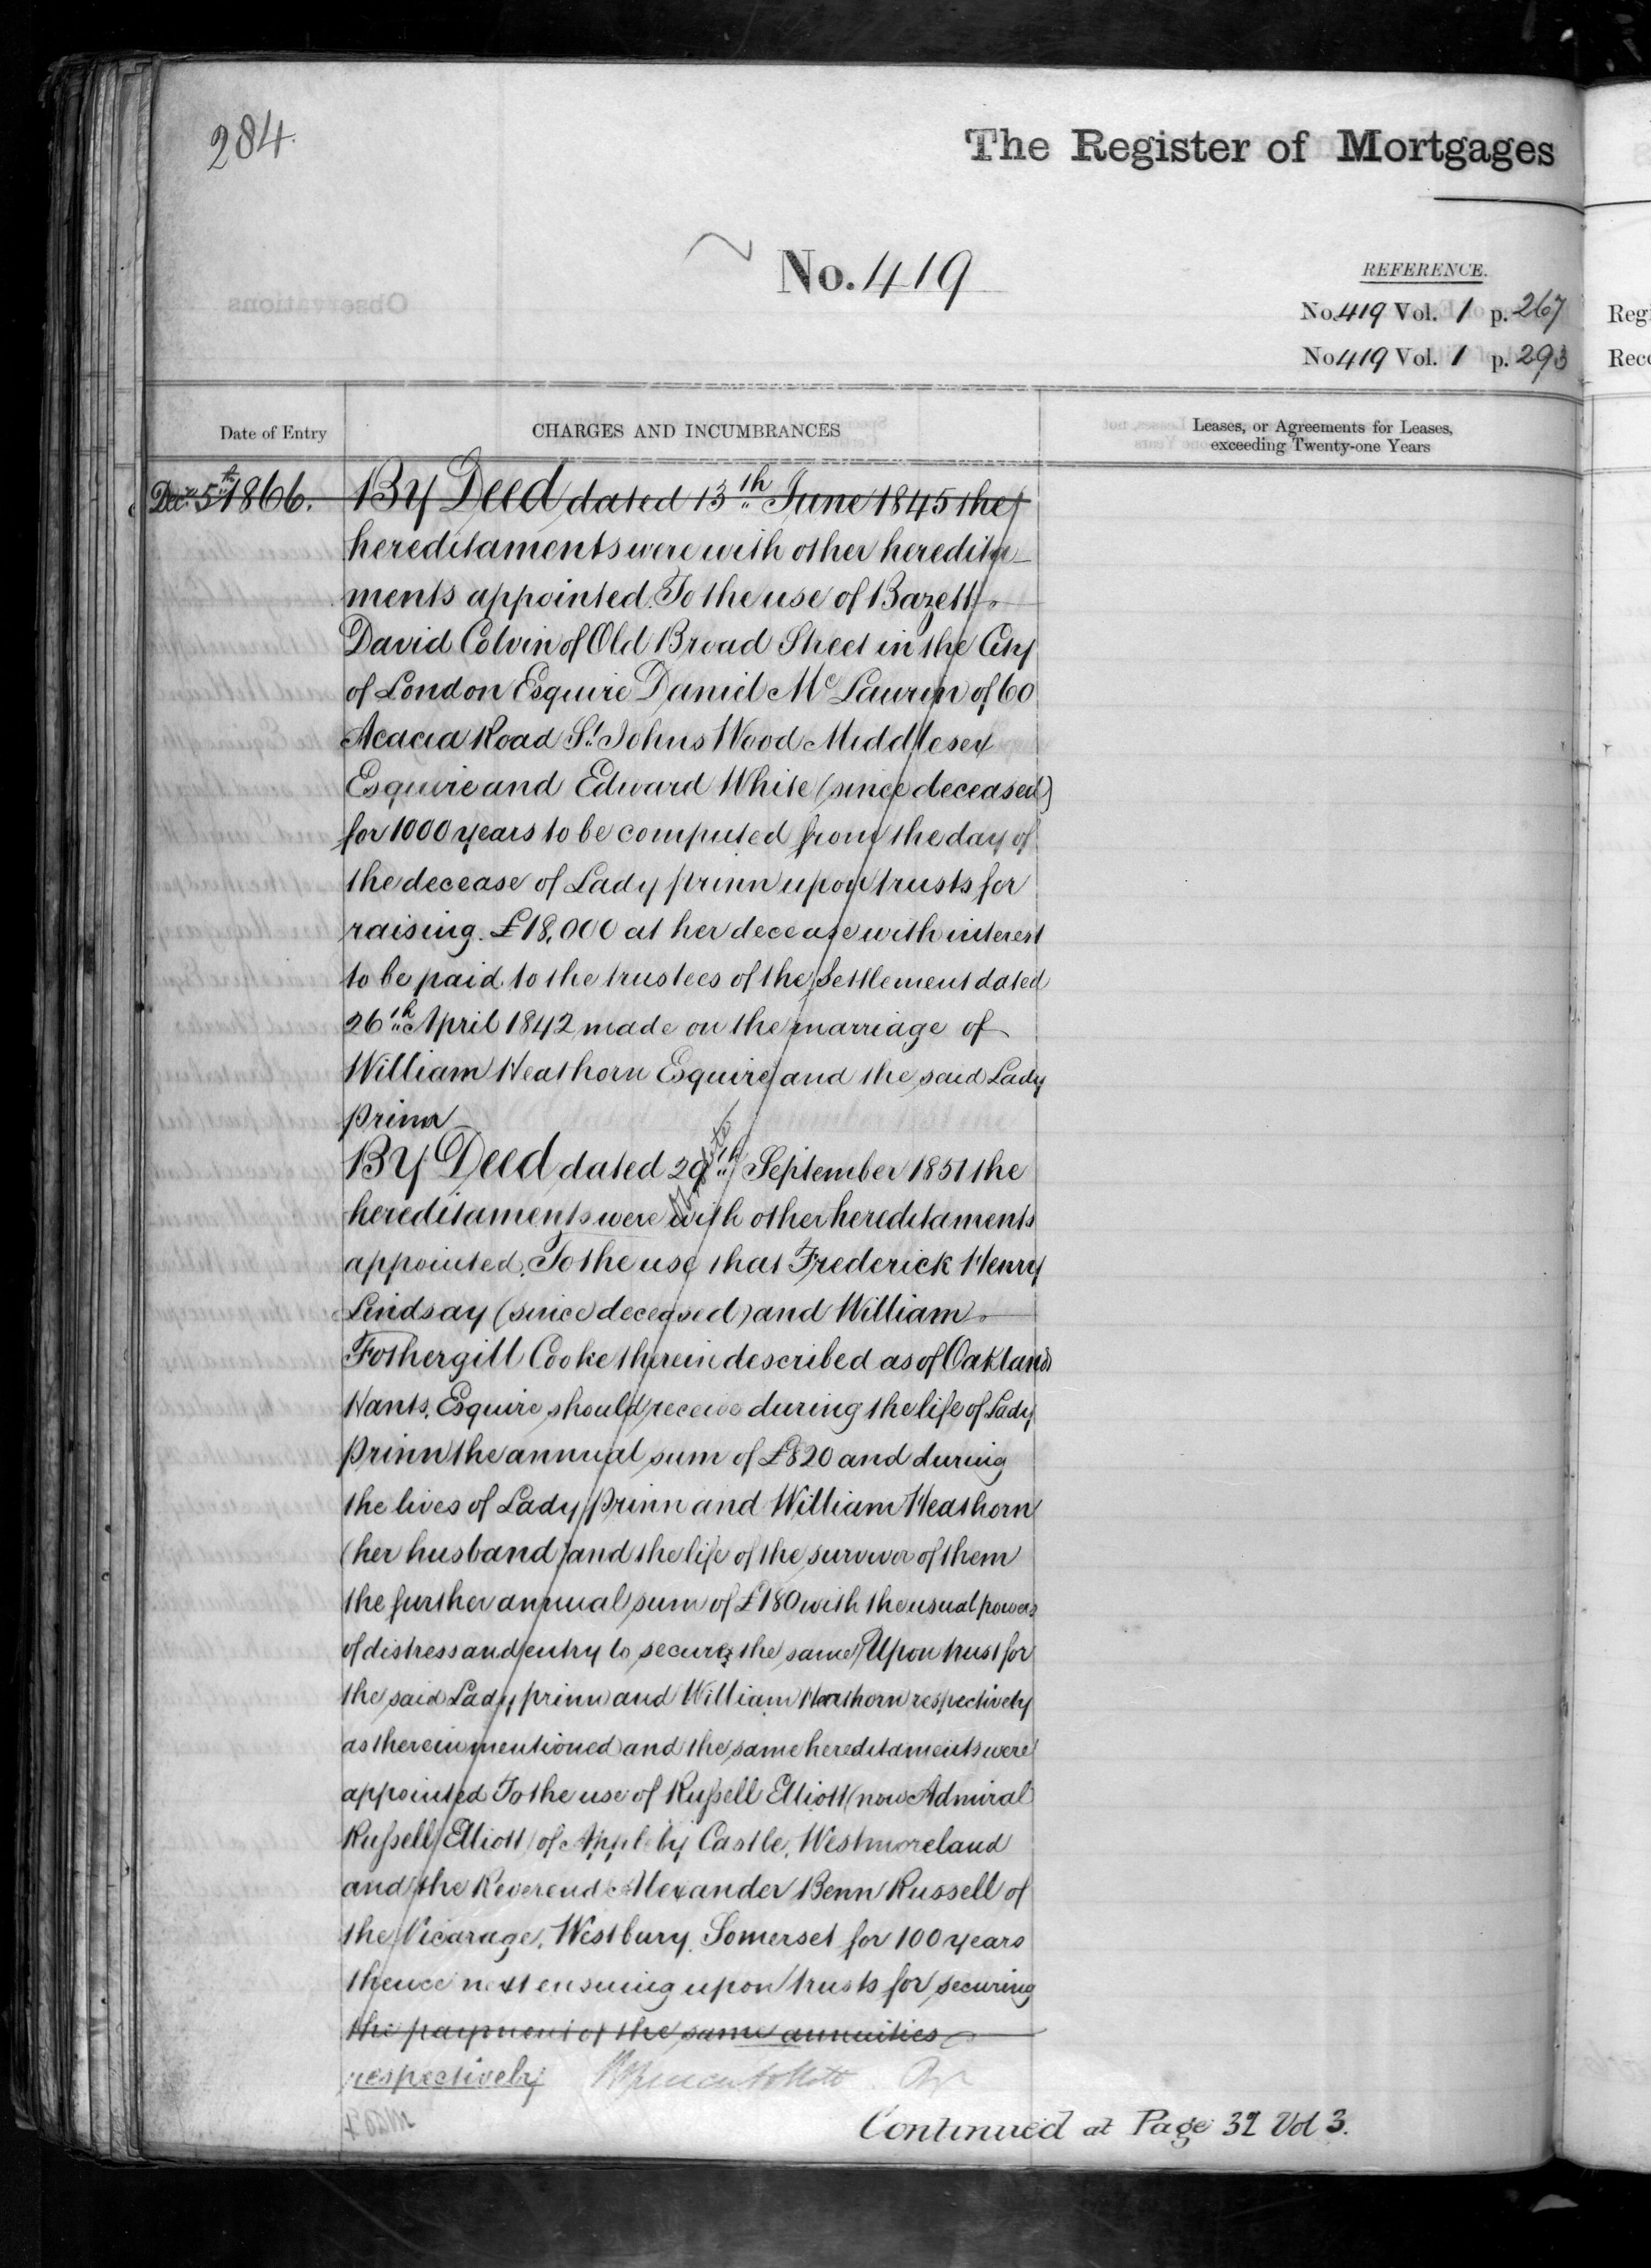 284.
The Register of Mortgages
No. 419
REFERENCE.
No. 419 Vol. 1 p. 267
No 419 Vol. 1 p. 293
Regi
Reco
Date of Entry
CHARGES AND INCUMBRANCES
Leases, or Agreements for Leases,
exceeding Twenty-one Years
Decr. 5th 1866. By Deed dated 13th June 1845 the
hereditaments were with other heredita-
ments appointed To the use of Bazett
David Colvin of Old Broad Street in the City
of London Esquire Daniel Mc Laurin of 60
Acacia Road St. Johns Wood Middlesex
Esquire and Edward White (since deceased)
for 1000 years to be computed from the day of
the decease of Lady Prinn upon trusts for
raising £18,000 at her decease with interest
to be paid to the trustees of the Settlement dated
26th April 1842 made on the marriage of
William Heathorn Esquire and the said Lady
Prinn
By Deed dated 29th September 1851 the
hereditaments were with other hereditaments
appointed. To the use that Frederick Henry
Lindsay (since deceased) and William
Fothergill Cooke therein described as of Oaklands
Hants, Esquire should receive during the life of Lady
Prinn the annual sum of £820 and during
the lives of Lady Prinn and William Heathorn
(her husband) and the life of the survivor of them
the further annual sum of £180 with the usual powers
of distress and entry to secure the same Upon trust for
the said Lady Prinn and William Heathorn respectively
as therein mentioned and the same hereditaments were
appointed To the use of Russell Elliott (now Admiral
Russell Elliott) of Appleby Castle, Westmoreland
and the Reverend Alexander Benn Russell of
the Vicarage, Westbury, Somerset for 100 years
thence next ensuing upon trusts for securing
the payment of the same annuities
respectively
Continued at Page 32 Vol 3.